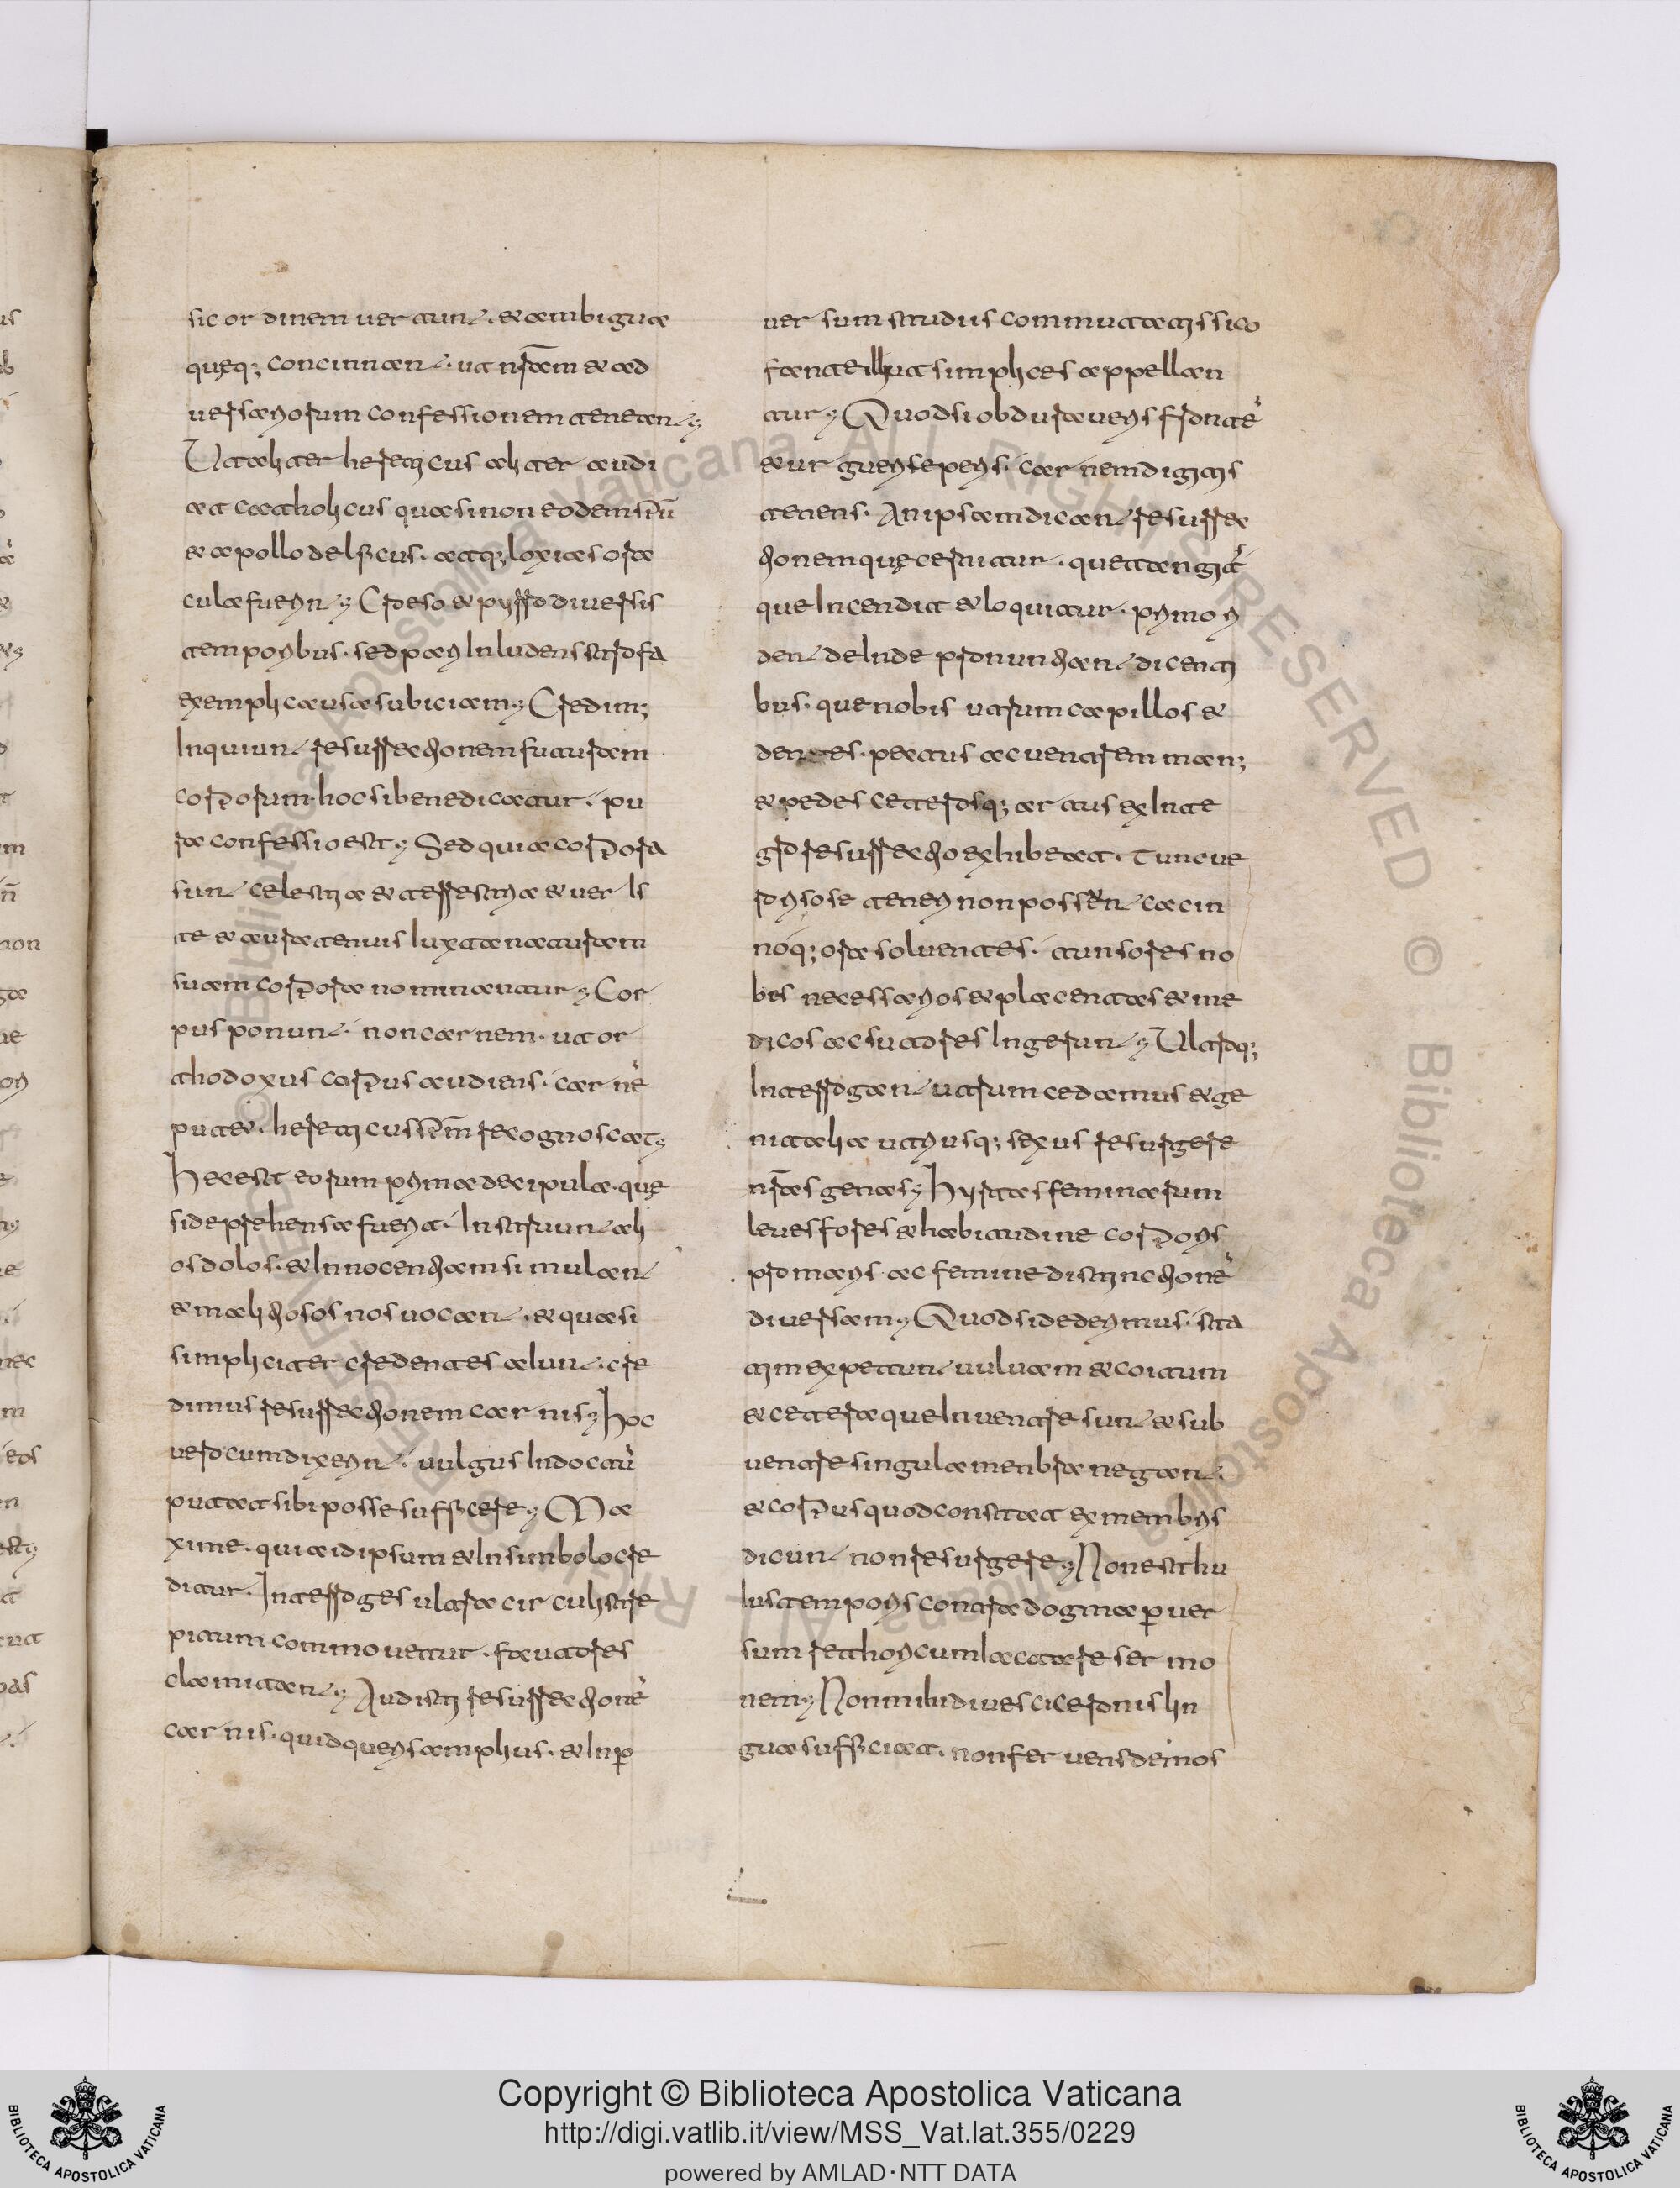 sic ordinem uertunt. & ambigua
quęq; concinnant. ut nr̄am & ad
uersariorum confessionem teneant;
Ut aliter hereticus aliter audi
at catholicus quasi non eodem sp̄u
& apollo delficus. atq; loxias ora
cula fuerint; Croeso & pyrro diuersis
temporibus. sed pari inludens strofa
exempli causa subiciam; Credim;
Inquiunt resurrectionem futuram
corporum. hoc si bene dicatur. pu
ra confessio est; Sed quia corpora
sunt celestia & terrestria & aer is
te & aura tenuis iuxta naturam
suam corpora nominantur; Cor
pus ponunt. non carnem. ut or
thodoxus corpus audiens. carnē
putet. hereticus sp̄m recognoscat;
Hec est eorum prima decipula. quę
si deprehensa fuerit. Instruunt ali
os dolos. & Innocentiam simulant
& malitiosos nos uocant. & quasi
simpliciter credentes aiunt. cre
dimus resurrectionem carnis; Hoc
uero cum dixerint. uulgus Indoctū
putat sibi posse sufficere; Ma
xime. quia idipsum & In simbolo cre
ditur. Interroges ultra circuli stre
pitum commouetur. fautores
clamitant; Audisti resurrectionē
carnis. quid queris amplius. & In p
uersum studiis commutatis syco
fantę illi ut simplices appellan
tur; Quod si obduraueris frontē
& urgueris seperis. carnem digitis
tenens. An ipsam dicant resurrec
tionem quę cernitur. que tangit̄
que Incendit & loquitur. primo ri
dent deinde pronuntiant dicenti
bus. que nobis utrum capillos &
dentes. pectus ac uentrem man;
& pedes ceterosq; artus ex Inte
gro resurrectio exhibeat. Tunc ue
ro riso se teneri non possent cacin
noq; ora soluentes. tunsores no
bis necessarios & placentas & me
dicos ac sutores Ingerunt; Ultroq;
Interrogant utrum credamus & ge
nitalia utriusq; sexus resurgere
nr̄as genas; Hyrtas feminarum
leues fores & habitudine corporis
pro maris ac femine distinctionē
diuersam; Quod si dederimus. sta
tim expetunt uuluam & coitum
& cetera que In uentre sunt & sub
uentre singula menbra negant.
& corpus quod constat ex membris
dicunt non resurgere; Non est hu
ius temporis contra dogma puer
sum rethoricum lactare sermo
nem; Non mihi diues ciceronis lin
gua sufficiat. non feruens demos
Copyright © Biblioteca Apostolica Vaticana
http://digi.vatlib.it/view/MSS_Vat.lat.355/0229
powered by AMLAD·NTT DATA